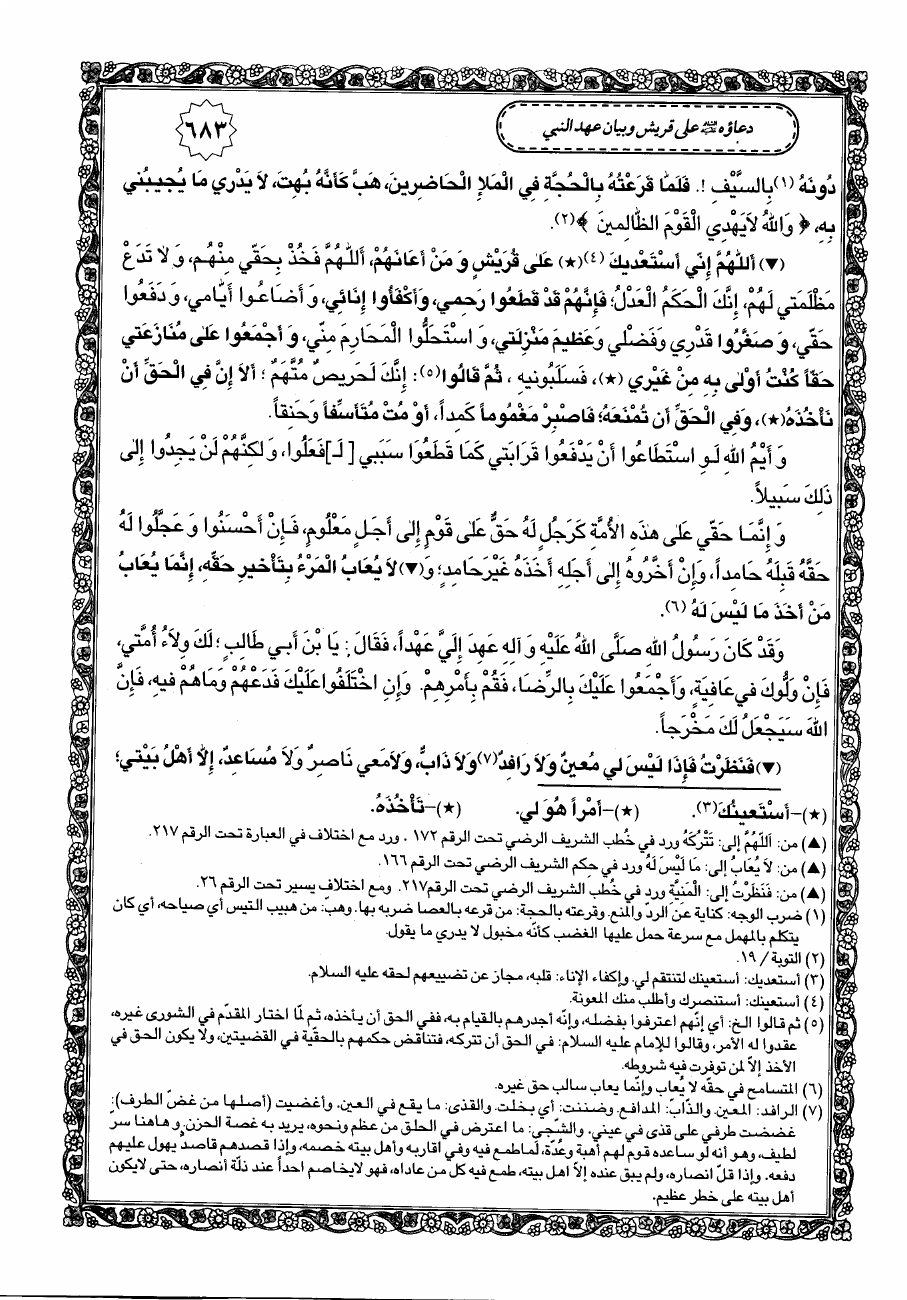 دعاؤه عليه السلام على قريش وبيان عهد النبي
٦٨٣
دُونَهُ (١) بِالسَّيْفِ !. فَلَمَّا قَرَعْتُهُ بِالْحُجَّةِ فِي الْمَلَإِ الْحَاضِرِينَ، هَبَّ كَأَنَّهُ بُهِتَ، لاَ يَدْرِي مَا يُجِيبُني
بِهِ، ﴿ وَاللهُ لاَيَهْدِي الْقَوْمَ الظَّالِمينَ ﴾(٢).
(▼) أَللّهُمَّ إِنّي أَسْتَعْديكَ (٤)(★) عَلى قُرَيْشٍ وَ مَنْ أَعَانَهُمْ، أَللّهُمَّ فَخُذْ بِحَقّي مِنْهُم، وَ لاَ تَدَعْ
مَظْلَمَتي لَهُمْ، إِنَّكَ الْحَكَمُ الْعَدْلُ؛ فَإِنَّهُمْ قَدْ قَطَعُوا رَحِمي، وَأَكْفَأُوا إِنَائي، وَ أَضَاعُوا أَيَّامي، وَ دَفَعُوا
حَقّي، وَ صَغَّرُوا قَدْري وَفَضْلي وَعَظيمَ مَنْزِلَتي، وَ اسْتَحَلُّوا الْمَحَارِمَ مِنّي، وَ أَجْمَعُوا عَلى مُنَازَعَتي
حَقّاً كُنْتُ أَوْلى بِهِ مِنْ غَيْري (★)، فَسَلَبُونيهِ ، ثُمَّ قَالُوا(٥): إِنَّكَ لَحَريصٌ مُتَّهَمٌ ؛ أَلاَ إِنَّ فِي الْحَقِّ أَنْ
نَأْخُذَهُ(★)، وَفِي الْحَقِّ أَن تُمْنَعَهُ؛ فَاصْبِرْ مَغْمُوماً كَمِداً، أَوْ مُتْ مُتَأَسِّفاً وَحَنِقاً.
وَ أَيْمُ اللهِ لَوِ اسْتَطَاعُوا أَنْ يَدْفَعُوا قَرَابَتي كَمَا قَطَعُوا سَبَبي [ لَـ]فَعَلُوا، وَ لكِنَّهُمْ لَنْ يَجِدُوا إِلى
ذلِكَ سَبيلاً.
وَ إِنَّمَا حَقّي عَلى هذِهِ الأُمَّةِ كَرَجُلٍ لَهُ حَقٌّ عَلى قَوْمٍ إِلى أَجَلٍ مَعْلُومٍ، فَإِنْ أَحْسَنُوا وَ عَجَّلُوا لَهُ
حَقَّهُ قَبِلَهُ حَامِداً، وَإِنْ أَخَّرُوهُ إِلى أَجَلِهِ أَخَذَهُ غَيْرَ حَامِدٍ؛ وَ(▼)لاَ يُعَابُ الْمَرْءُ بِتَأْخيرِ حَقِّهِ، إِنَّمَا يُعَابُ
مَنْ أَخَذَ مَا لَيْسَ لَهُ (٦).
وَقَدْ كَانَ رَسُولُ اللهِ صَلَّى اللهُ عَلَيْهِ وَ آلِهِ عَهِدَ إِلَيَّ عَهْداً، فَقَالَ : يَا بْنَ أَبي طَالِبٍ ؛ لَكَ وِلاَءُ أُمَّتي،
فَإِنْ وَلُّوكَ في عَافِيَةٍ، وَأَجْمَعُوا عَلَيْكَ بِالرِّضَا، فَقُمْ بِأَمْرِهِمْ. وَإِنِ اخْتَلَفُوا عَلَيْكَ فَدَعْهُمْ وَمَاهُمْ فيهِ، فَإِنَّ
اللهَ سَيَجْعَلُ لَكَ مَخْرَجاً.
(▼) فَنَظَرْتُ فَإِذَا لَيْسَ لي مُعينٌ وَلاَ رَافِدٌ(٧)وَلاَ ذَابٌّ، وَلاَمَعي نَاصِرٌ وَلاَ مُسَاعِدٌ، إِلاَّ أَهْلُ بَيْتي؛
(★)–أَسْتَعينُكَ(٣). (★)–أَمْراً هُوَ لي. (★)–تَأْخُذَهُ.
(▲) من: أَللّهُمَّ إلى: نَتْرُكَهُ ورد في خُطب الشريف الرضي تحت الرقم ١٧٢ . ورد مع اختلاف في العبارة تحت الرقم ٢١٧.
(▲) من: لاَ يُعَابُ إلى: مَا لَيْسَ لَهُ ورد في حكم الشريف الرضي تحت الرقم ١٦٦.
(▲) من: فَنَظَرْتُ إلى: الْمَنِيَّةِ ورد في خُطب الشريف الرضي تحت الرقم٢١٧. ومع اختلاف يسير تحت الرقم ٢٦.
(١) ضرب الوجه: كناية عن الردّ والمنع. وقرعته بالحجة: من قرعه بالعصا ضربه بها. وهبّ: من هبيب التيس أي صياحه، أي كان
يتكلم بالمهمل مع سرعة حمل عليها الغضب كأنّه مخبول لا يدري ما يقول.
(٢) التوبة / ١٩.
(٣) أستعديك: أستعينك لتنتقم لي. وإكفاء الإناء: قلبه، مجاز عن تضييعهم لحقه عليه السلام.
(٤) أستعينك: أستنصرك وأطلب منك المعونة.
(٥) ثم قالوا الخ: أي إنّهم اعترفوا بفضله، وإنّه أجدرهم بالقيام به، ففي الحق أن يأخذه، ثم لمّا اختار المقدّم في الشورى غيره،
عقدوا له الأمر، وقالوا للإمام عليه السلام: في الحق أن تتركه، فتناقض حكمهم بالحقّية في القضيتين، ولا يكون الحق في
الأخذ إلاّ لمن توفرت فيه شروطه.
(٦) المتسامح في حقّه لا يُعاب وإنّما يعاب سالب حق غيره.
(٧) الرافد: المعين. والذّابّ: المدافع. وضننت: أي بخلت. والقذى: ما يقع في العين. وأغضيت (أصلها من غضّ الطرف):
غضضت طرفي على قذى في عيني. والشّجي: ما اعترض في الحلق من عظم ونحوه، يريد به غصة الحزن. و هاهنا سر
لطيف، وهو أنه لو ساعده قوم لهم أهبة وعُدّة، لماطمع فيه وفي أقاربه وأهل بيته خصمه، وإذا قصدهم قاصدٌ يهول عليهم
دفعه. وإذا قلّ انصاره، ولم يبق عنده إلاّ اهل بيته، طمع فيه كل من عاداه، فهو لايخاصم احداً عند ذلّة أنصاره، حتى لايكون
أهل بيته على خطر عظيم.